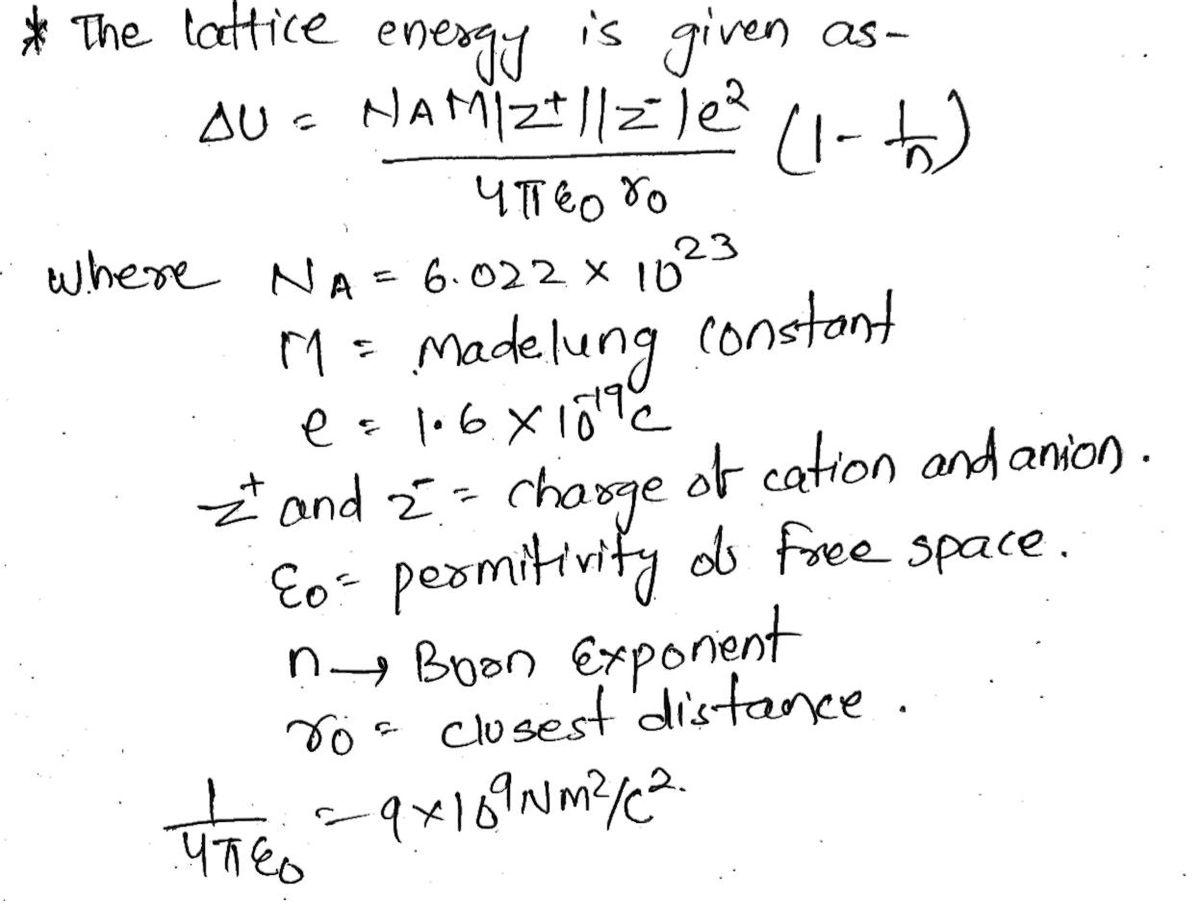 * The lattice energy is given as-
ΔU = NAM|z⁺||z⁻|e² / 4πε₀r₀ (1 - 1/n)
where NA = 6.022 × 10²³
M = Madelung constant
e = 1.6 × 10⁻¹⁹C
z⁺ and z⁻ = charge of cation and anion.
ε₀ = permitivity of free space.
n → Born Exponent
r₀ = closest distance.
1/4πε₀ = 9×10⁹Nm²/C².